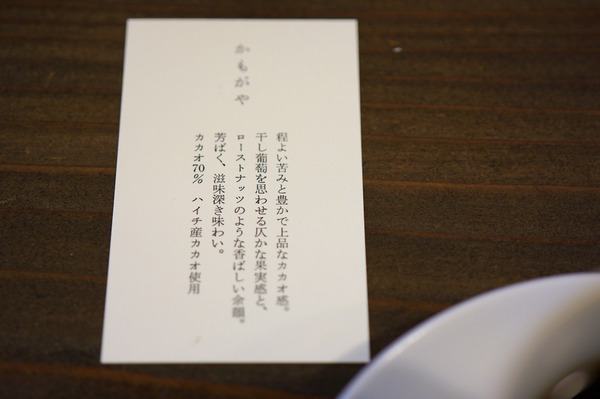 かもがや
程よい苦みと豊かで上品なカカオ感。
干し葡萄を思わせる仄かな果実感と、
ローストナッツのような香ばしい余韻。
芳ばく、滋味深き味わい。
カカオ70% ハイチ産カカオ使用